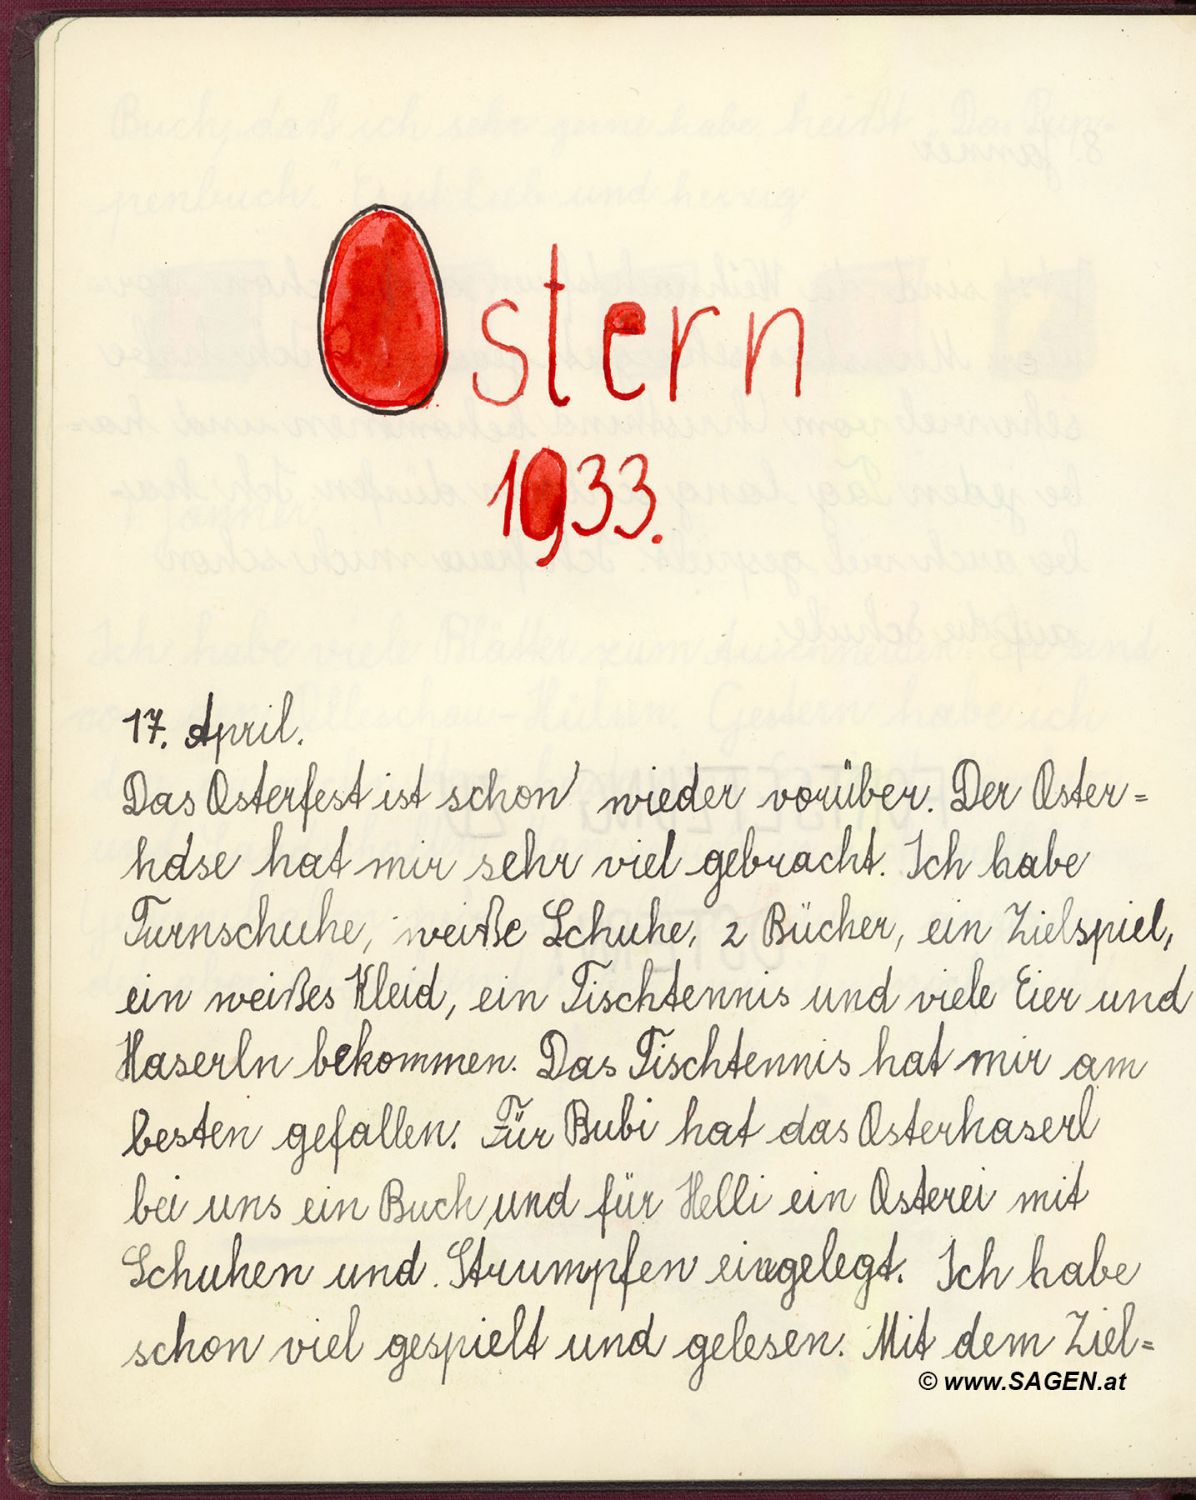 Ostern
1933.
17. April.
Das Osterfest ist schon wieder vorüber. Der Oster=
hase hat mir sehr viel gebracht. Ich habe
Turnschuhe, weiße Schuhe, 2 Bücher, ein Zielspiel,
ein weißes Kleid, ein Tischtennis und viele Eier und
Haserln bekommen. Das Tischtennis hat mir am
besten gefallen. Für Bubi hat das Osterhaserl
bei uns ein Buch und für Helli ein Osterei mit
Schuhen und Strumpfen eingelegt. Ich habe
schon viel gespielt und gelesen. Mit dem Ziel=
© www.SAGEN.at